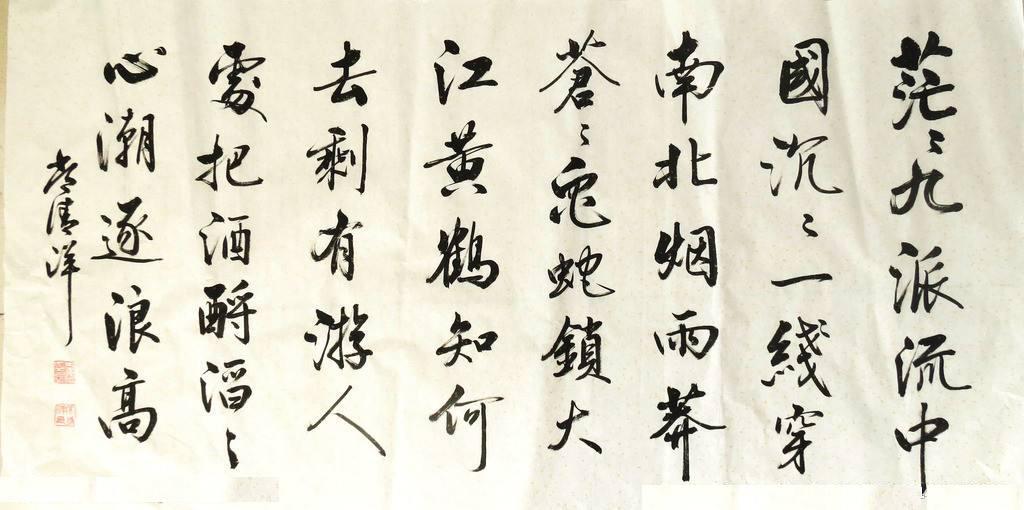 茫〻九派流中
國沉〻一綫穿
南北烟雨莽
蒼〻龜蛇鎖大
江黄鶴知何
去剩有游人
處把酒酹滔〻
心潮逐浪高
清洋